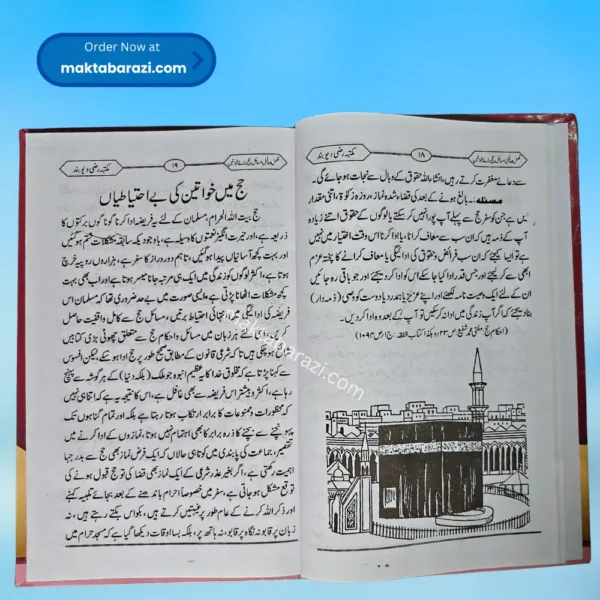 Order Now at
maktabarazi.com
مکتبہ رضی دیوبند
۱۸
سے دعائے مغفرت کرتے رہیں، انشاءاللہ حقوق کے وبال سے نجات ہو جائے گی۔
مسئلہ:۔ بالغ ہونے کے بعد کی قضاء شدہ نماز، روزہ، زکوٰۃ، اتنی مقدار
میں ہے جن کو سفر حج سے پہلے آپ پورا نہیں کر سکتے یا لوگوں کے حقوق اتنے زیادہ
آپ کے ذمہ ہیں کہ ان سب سے معاف کرانا، یا ادا کرنا اس وقت اختیار میں نہیں
ہے تو ایسا کیجئے کہ ان سب فرائض و حقوق کی ادائیگی یا معاف کرانے کا پختہ عزم
ابھی سے کر لیجئے اور جس قدر ادا کیا جا سکے اس کو ادا کر دیجئے اور جو باقی رہ جائیں
ان کے لئے ایک وصیت نامہ لکھئے اور اپنے عزیز یا ہمدرد یا دوست کو وصی (ذمہ دار)
بنا دیجئے کہ اگر آپ زندگی میں ادا نہ کر سکیں تو آپ کے بعد وہ ادا کر دیں۔
(احکام حج مفتی محمد شفیعؒ ص ۲۳ و ہکذا کتاب الفقہ ج ۱ ص ۱۰۹۳)
۱۹
مکتبہ رضی دیوبند
حج میں خواتین کی بے احتیاطیاں
حج بیت اللہ الحرام، مسلمان کے لئے یہ فریضہ ادا کرنا گوناگوں برکتوں کا
ذریعہ ہے، اور حیرت انگیز نعمتوں کا وسیلہ ہے، باوجود یکہ سابقہ مشکلات ختم ہو گئیں
اور بہت کچھ آسانیاں پیدا ہو گئیں، تاہم دور دراز کا سفر ہے، ہزاروں روپیہ خرچ
ہوتا ہے، اکثر لوگوں کو زندگی میں ایک ہی مرتبہ جانا میسر ہوتا ہے اور اب بھی بہت
کچھ مشکلات اٹھانا پڑتی ہے، ایسی صورت میں بے حد ضروری تھا کہ مسلمان اس
فریضہ کی ادائیگی میں انتہائی احتیاط برتیں، مسائل حج سے کامل واقفیت حاصل
کریں، اس کے لئے ہر زبان میں مسائل و احکام حج سے متعلق چھوٹی بڑی کتابیں
شائع ہو چکی ہیں تا کہ شرعی قانون کے مطابق صحیح طور پر حج ادا ہو سکے لیکن افسوس
سے کہنا پڑتا ہے کہ مخلوق خدا کا یہ عظیم انبوہ جو ملک (بلکہ دنیا) کے ہر گوشہ سے پہنچ
رہا ہے، اکثر و بیشتر اس فریضہ سے بھی غافل ہے، اس کا نتیجہ یہ ہے کہ اتنا ہی نہیں
کہ محظورات و ممنوعات کا برابر ارتکاب ہوتا رہتا ہے بلکہ اور تمام گناہوں تک
پہو نچنے سے بچنے کا ذرہ برابر کا بھی اہتمام نہیں ہوتا، نمازوں کے ادا کرنے میں
تقصیر، جماعت کی پابندی میں کوتاہی حالاں کہ ایک فرض نماز بھی حج سے بدرجہا
اہمیت رکھتی ہے، اگر بغیر عذر شرعی کے ایک نماز بھی قضا کی تو حج قبول ہونے کی
توقع مشکل ہو جاتی ہے، سفر میں خصوصاً احرام باندھنے کے بعد بجائے تکبیہ کہنے
اور ذکر اللہ کرنے کے عام طور پر غیبتیں کرتے ہیں، بکواس بکتے رہتے ہیں، نہ
زبان پر قابو نہ نگاہ پر قابو، نہ ہاتھ پر، بلکہ بسا اوقات دیکھا گیا ہے کہ مسجد حرام میں
maktabarazi.com